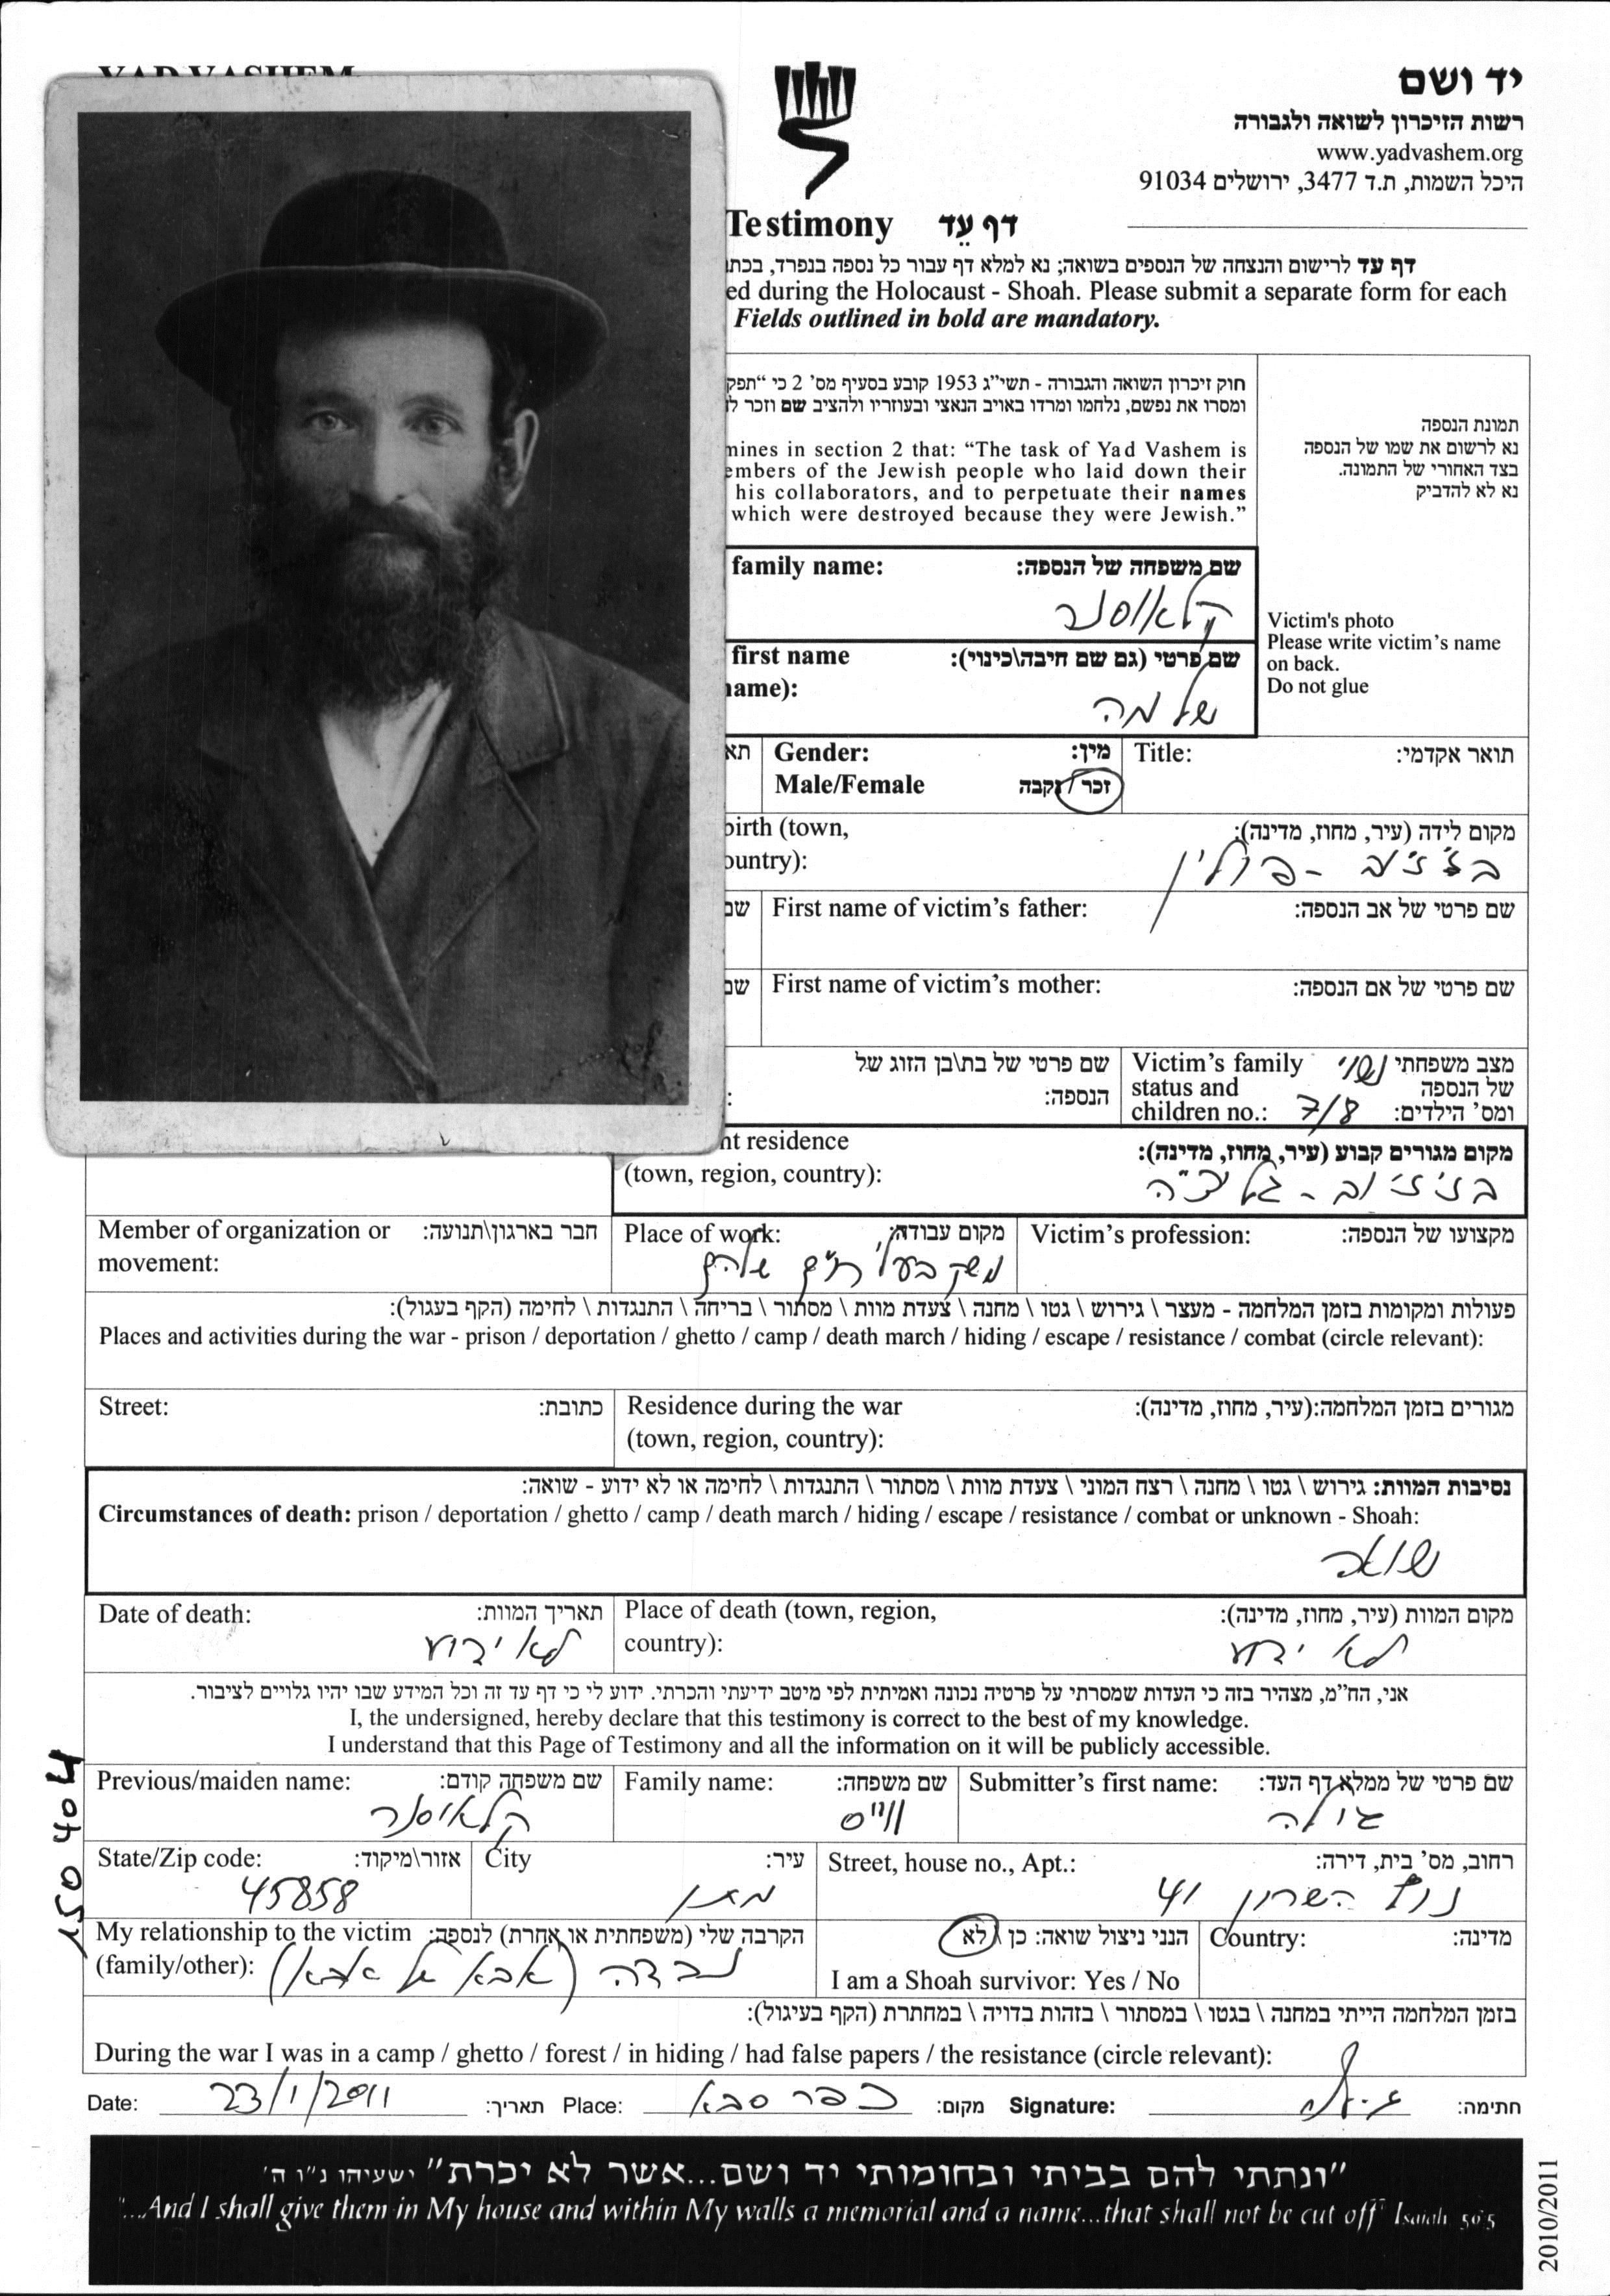 יד ושם
רשות הזיכרון לשואה ולגבורה
www.yadvashem.org
היכל השמות, ת.ד 3477, ירושלים 91034
Testimony דף עֵד
דף עד לרישום והנצחה של הנספים בשואה; נא למלא דף עבור כל נספה בנפרד,
ed during the Holocaust - Shoah. Please submit a separate form for each
Fields outlined in bold are mandatory.
חוק זיכרון השואה והגבורה - תשי"ג 1953 קובע בסעיף מס' 2 כי
ומסרו את נפשם, נלחמו ומרדו באויב הנאצי ובעוזריו ולהציב שם וזכר
mines in section 2 that: “The task of Yad Vashem is
embers of the Jewish people who laid down their
his collaborators, and to perpetuate their names
which were destroyed because they were Jewish.”
תמונת הנספה
נא לרשום את שמו של הנספה
בצד האחורי של התמונה.
נא לא להדביק
Victim's photo
Please write victim's name
on back.
Do not glue
family name: שם משפחה של הנספה:
קלאוסנר
first name שם פרטי (גם שם חיבה\כינוי):
name):
שלמה
Gender: מין: Title: תואר אקדמי:
Male/Female זכר / נקבה
birth (town, מקום לידה (עיר, מחוז, מדינה):
ountry):
בז'ז'וב - פולין
First name of victim's father: שם פרטי של אב הנספה:
First name of victim's mother: שם פרטי של אם הנספה:
שם פרטי של בת\בן הזוג של
הנספה:
Victim's family מצב משפחתי נשוי
status and של הנספה
children no.: 7/8 ומס' הילדים:
nt residence מקום מגורים קבוע (עיר, מחוז, מדינה):
(town, region, country):
בז'ז'וב - גליציה
Member of organization or חבר בארגון\תנועה: Place of work: מקום עבודה: Victim's profession: מקצועו של הנספה:
movement:
משק בעלי חיים שלהם
פעולות ומקומות בזמן המלחמה - מעצר \ גירוש \ גטו \ מחנה \ צעדת מוות \ מסתור \ בריחה \ התנגדות \ לחימה (הקף בעגול):
Places and activities during the war - prison / deportation / ghetto / camp / death march / hiding / escape / resistance / combat (circle relevant):
Street: כתובת: Residence during the war מגורים בזמן המלחמה:(עיר, מחוז, מדינה):
(town, region, country):
נסיבות המוות: גירוש \ גטו \ מחנה \ רצח המוני \ צעדת מוות \ מסתור \ התנגדות \ לחימה או לא ידוע - שואה:
Circumstances of death: prison / deportation / ghetto / camp / death march / hiding / escape / resistance / combat or unknown - Shoah:
שואה
Date of death: תאריך המוות: Place of death (town, region, מקום המוות (עיר, מחוז, מדינה):
country):
לא ידוע לא ידוע
אני, הח"מ, מצהיר בזה כי העדות שמסרתי על פרטיה נכונה ואמיתית לפי מיטב ידיעתי והכרתי. ידוע לי כי דף עד זה וכל המידע שבו יהיו גלויים לציבור.
I, the undersigned, hereby declare that this testimony is correct to the best of my knowledge.
I understand that this Page of Testimony and all the information on it will be publicly accessible.
Previous/maiden name: שם משפחה קודם: Family name: שם משפחה: Submitter's first name: שם פרטי של ממלא דף העד:
קלאוסנר ווייס גילה
State/Zip code: אזור\מיקוד: City עיר: Street, house no., Apt.: רחוב, מס' בית, דירה:
45858 מתן נוף השרון 41
My relationship to the victim הקרבה שלי (משפחתית או אחרת) לנספה: הנני ניצול שואה: כן \ לא Country: מדינה:
(family/other): נכדה (אבא של אבא) I am a Shoah survivor: Yes / No
בזמן המלחמה הייתי במחנה \ בגטו \ במסתור \ בזהות בדויה \ במחתרת (הקף בעיגול):
During the war I was in a camp / ghetto / forest / in hiding / had false papers / the resistance (circle relevant):
Date: 23/1/2011 תאריך: Place: כפר סבא מקום: Signature: חתימה:
"ונתתי להם בביתי ובחומותי יד ושם...אשר לא יכרת" ישעיהו נ"ו ה'
"...And I shall give them in My house and within My walls a memorial and a name...that shall not be cut off" Isaiah 56:5
150 404
2010/2011